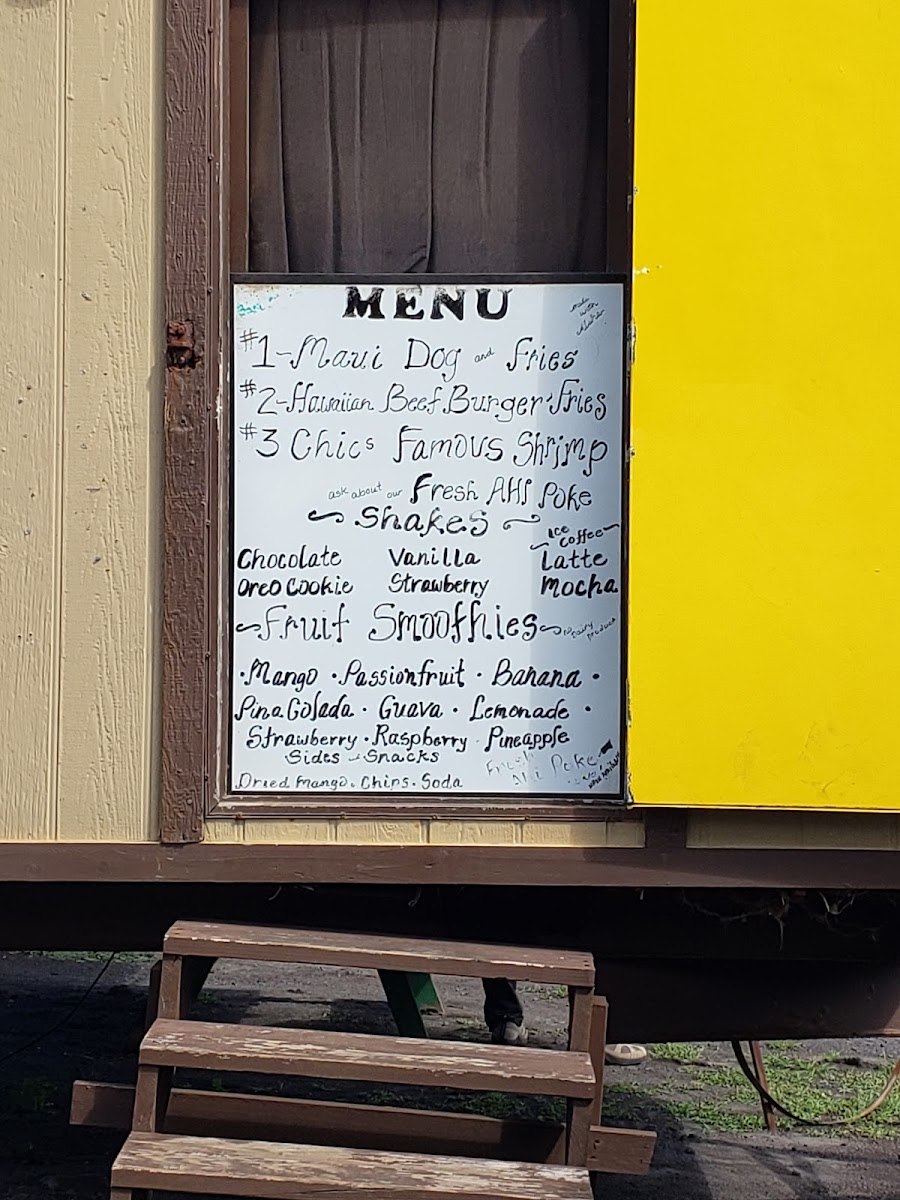 MENU
made with Aloha
#1-Maui Dog and Fries
#2-Hawaiian Beef Burger Fries
#3 Chics Famous Shrimp
ask about our Fresh AHI Poke
Shakes
Ice Coffee
Chocolate Vanilla Latte
Oreo Cookie Strawberry Mocha
Fruit Smoothies
no dairy products
·Mango ·Passionfruit · Banana ·
Pina Colada · Guava · Lemonade ·
Strawberry · Raspberry · Pineapple
Sides Snacks
Dried Mango · Chips · Soda
Fresh
Ahi Poke
when available